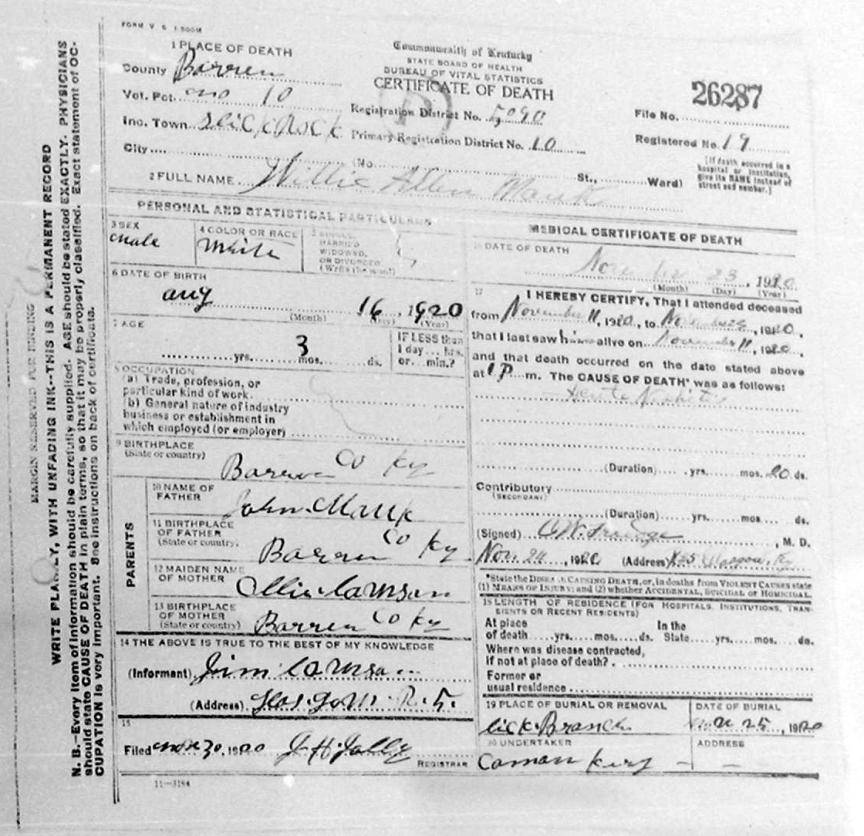 FORM V. S. 1-500M
1 PLACE OF DEATH
County Barren
Vot. Pct. no 10
Inc. Town
City
Commonwealth of Kentucky
STATE BOARD OF HEALTH
BUREAU OF VITAL STATISTICS
CERTIFICATE OF DEATH
Registration District No. 5090
Primary Registration District No. 10
(No. St., Ward)
26287
File No.
Registered No. 19
[If death occurred in a
hospital or institution,
give its NAME instead of
street and number.]
2 FULL NAME Willie Allen Mauk
PERSONAL AND STATISTICAL PARTICULARS
3 SEX
Male
4 COLOR OR RACE
White
5 SINGLE,
MARRIED,
WIDOWED,
OR DIVORCED
(Write the word)
6 DATE OF BIRTH
aug 16 1920
(Month) (Day) (Year)
7 AGE
yrs. 3 mos. ds.
IF LESS than
1 day... hrs.
or... min.?
8 OCCUPATION
(a) Trade, profession, or
particular kind of work.
(b) General nature of industry
business or establishment in
which employed (or employer)
9 BIRTHPLACE
(State or country)
Barren Co Ky
PARENTS
10 NAME OF
FATHER
John Mauk
11 BIRTHPLACE
OF FATHER
(State or country)
Barren Co Ky.
12 MAIDEN NAME
OF MOTHER
13 BIRTHPLACE
OF MOTHER
(State or country)
Barren Co Ky
14 THE ABOVE IS TRUE TO THE BEST OF MY KNOWLEDGE
(Informant) Jim
(Address) R. 5.
15
Filed 30, 1920 J. H. Jolly
REGISTRAR
11-3184
MEDICAL CERTIFICATE OF DEATH
16 DATE OF DEATH
November 23 1920
(Month) (Day) (Year)
17
I HEREBY CERTIFY, That I attended deceased
from November 11, 1920, to 1920,
that I last saw h alive on November 11, 1920,
and that death occurred on the date stated above
at 1 P m. The CAUSE OF DEATH* was as follows:
(Duration) yrs. mos. 20 ds.
Contributory
(SECONDARY)
(Duration) yrs. mos. ds.
(Signed) M. D.
Nov. 24, 1920 (Address) Glasgow, Ky
*State the DISEASE CAUSING DEATH, or, in deaths from VIOLENT CAUSES state
(1) MEANS OF INJURY; and (2) whether ACCIDENTAL, SUICIDAL or HOMICIDAL.
18 LENGTH OF RESIDENCE (FOR HOSPITALS, INSTITUTIONS, TRAN-
SIENTS OR RECENT RESIDENTS)
At place of death yrs. mos. ds. In the State yrs. mos. ds.
Where was disease contracted,
if not at place of death?
Former or
usual residence
19 PLACE OF BURIAL OR REMOVAL
Lick Branch
DATE OF BURIAL
25, 1920
20 UNDERTAKER
ADDRESS
MARGIN RESERVED FOR BINDING
WRITE PLAINLY, WITH UNFADING INK--THIS IS A PERMANENT RECORD
N. B.--Every item of information should be carefully supplied. AGE should be stated EXACTLY. PHYSICIANS
should state CAUSE OF DEATH in plain terms, so that it may be properly classified. Exact statement of OC-
CUPATION is very important. See instructions on back of certificate.